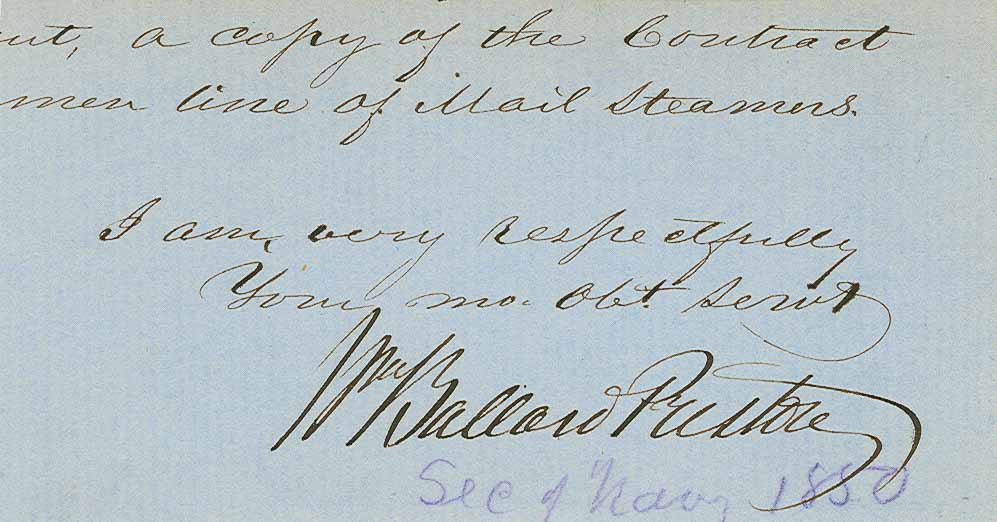 a copy of the Contract
men line of Mail Steamers.
I am, very respectfully
Your mo. Obt. Servt
Wm Ballard Preston
Sec of Navy 1850